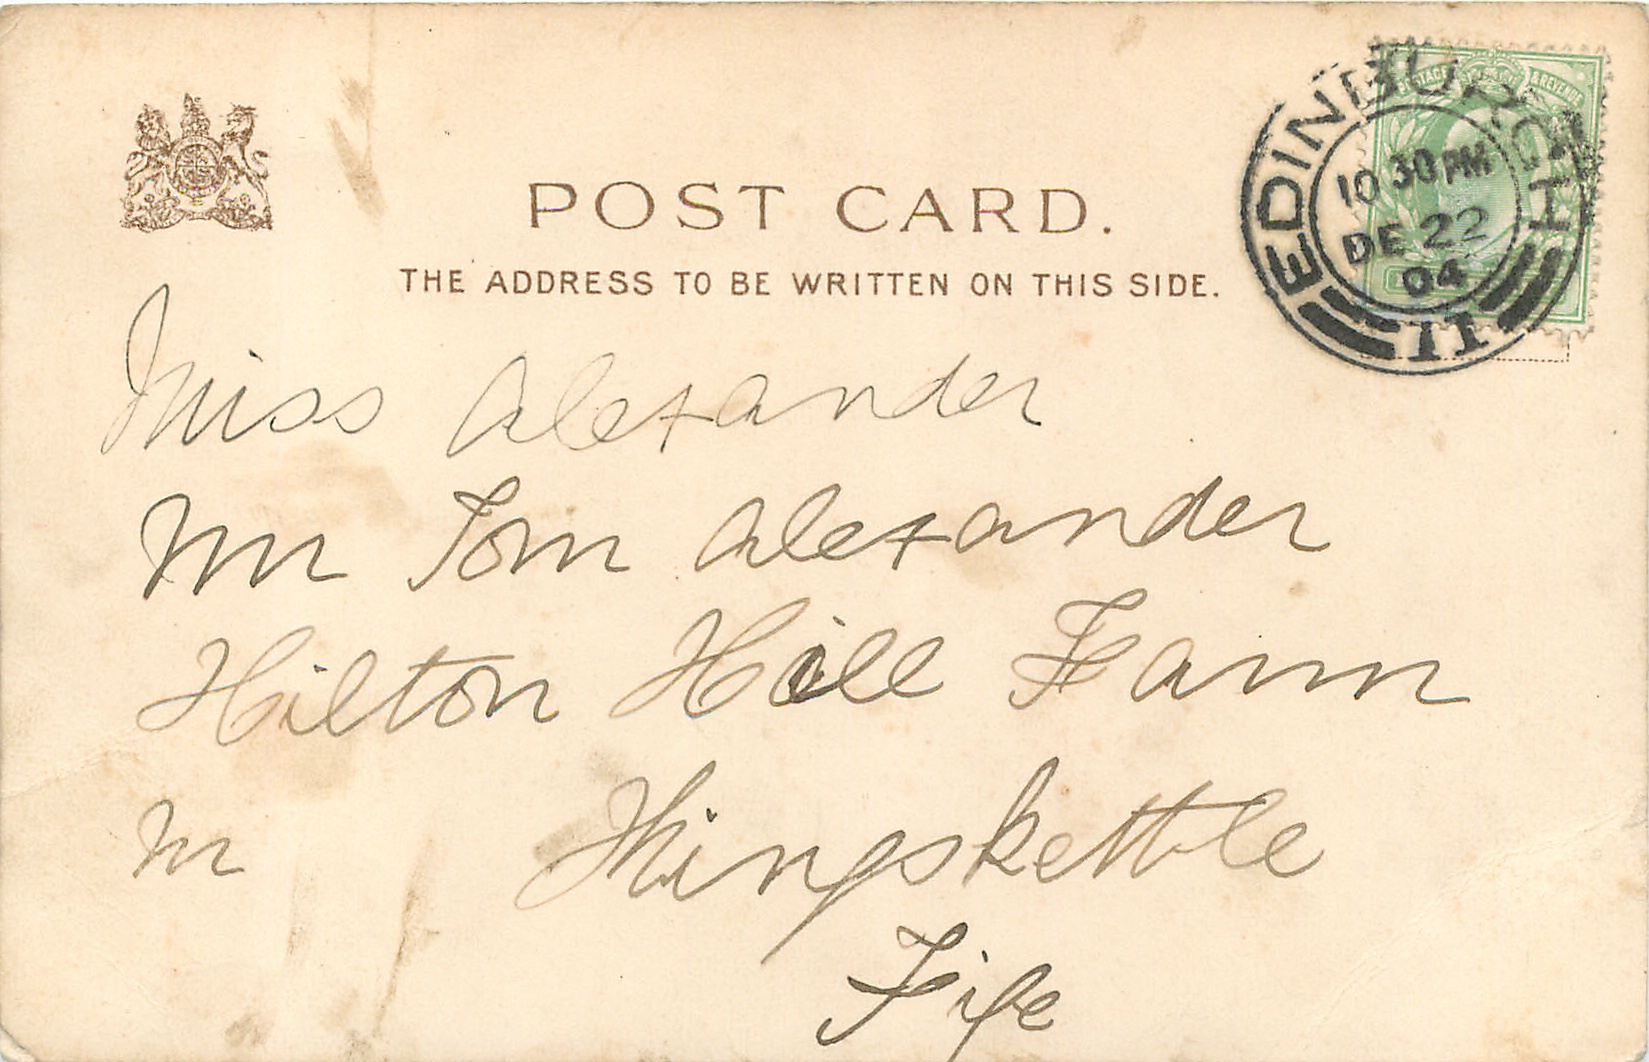 POST CARD.
THE ADDRESS TO BE WRITTEN ON THIS SIDE.
POSTAGE & REVENUE
EDINBURGH
10 30 PM
DE 22
04
11
Miss Alexander
Mr Tom Alexander
Hilton Hill Farm
Kingskettle
Fife